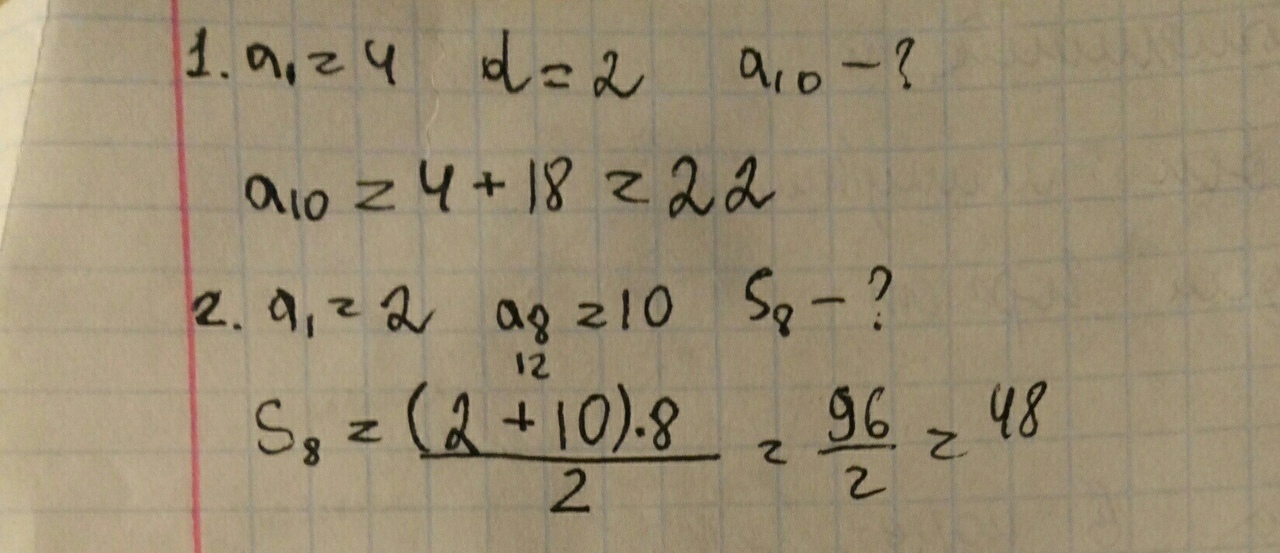 1. a₁ = 4 d = 2 a₁₀ - ?
a₁₀ = 4 + 18 = 22
2. a₁ = 2 a₈ = 10 S₈ - ?
12
S₈ = (2 + 10)·8 / 2 = 96 / 2 = 48